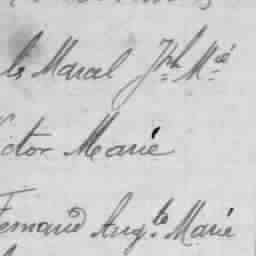 ls Marcel Jph Mie
ictor Marie
Fernand Augte Marie